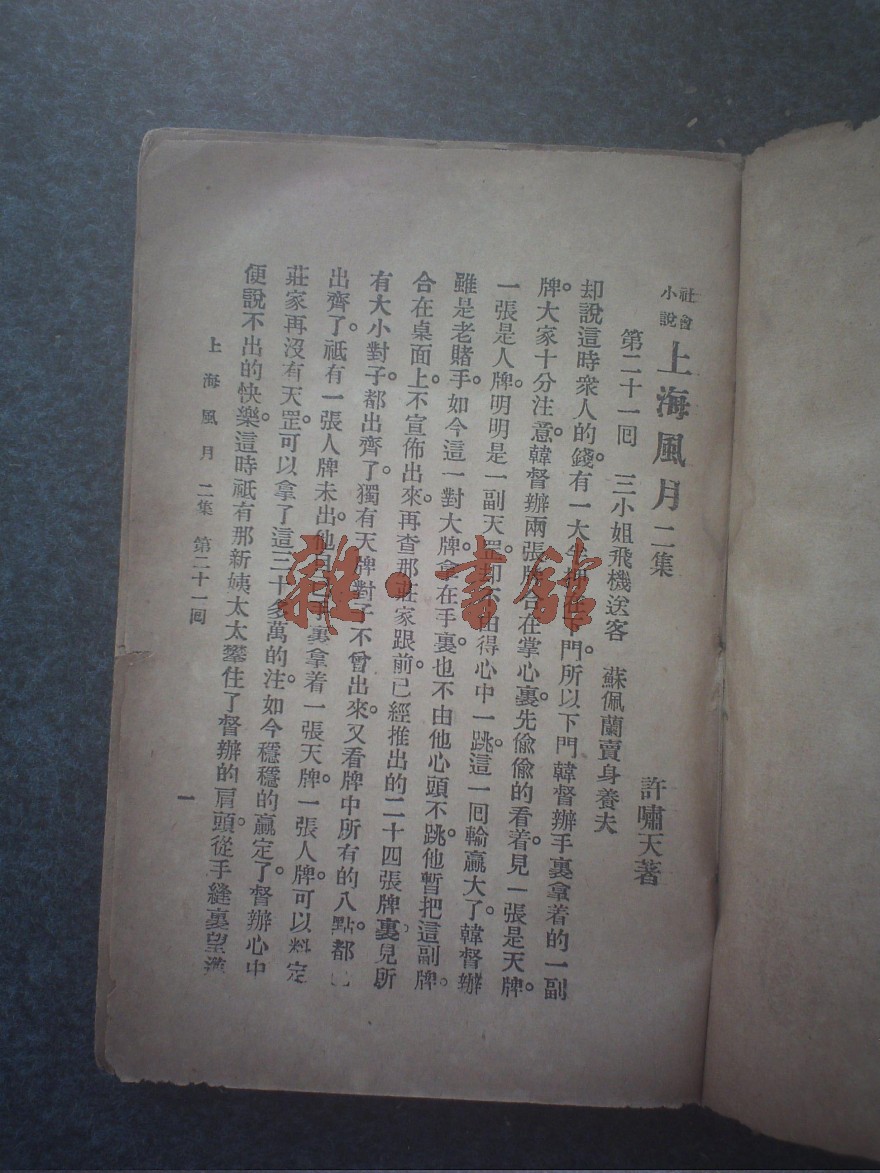 社會小說 上海風月二集
許嘯天著
第二十一回 三小姐飛機送客 蘇佩蘭賣身養夫
却說這時衆人的錢。有一大半押在下門。所以下門韓督辦手裏拿着的一副
牌。大家十分注意。韓督辦兩張牌合在掌心裏。先偸偸的看着。見一張是天牌。
一張是人牌。明明是一副天罡。却不由得心中一跳。這一回輸贏大了。韓督辦
雖是老賭手。如今這一對大牌。拿在手裏。也不由他心頭不跳。他暫把這副牌。
合在桌面上。不宣佈出來。再查那莊家跟前。已經推出的二十四張牌裏。見所
有大小對子。都出齊了。獨有天牌對子。不曾出來。又看牌中所有的八點。都
出齊了。祗有一張人牌未出。他自己手裏拿着一張天牌。一張人牌。可以料定
莊家再沒有天罡。可以拿了這三十多萬的注。如今穩穩的贏定了。督辦心中
便說不出的快樂。這時祗有那新姨太太攀住了督辦的肩頭。從手縫裏望
上海風月 二集 第二十一回
一
雜·書館